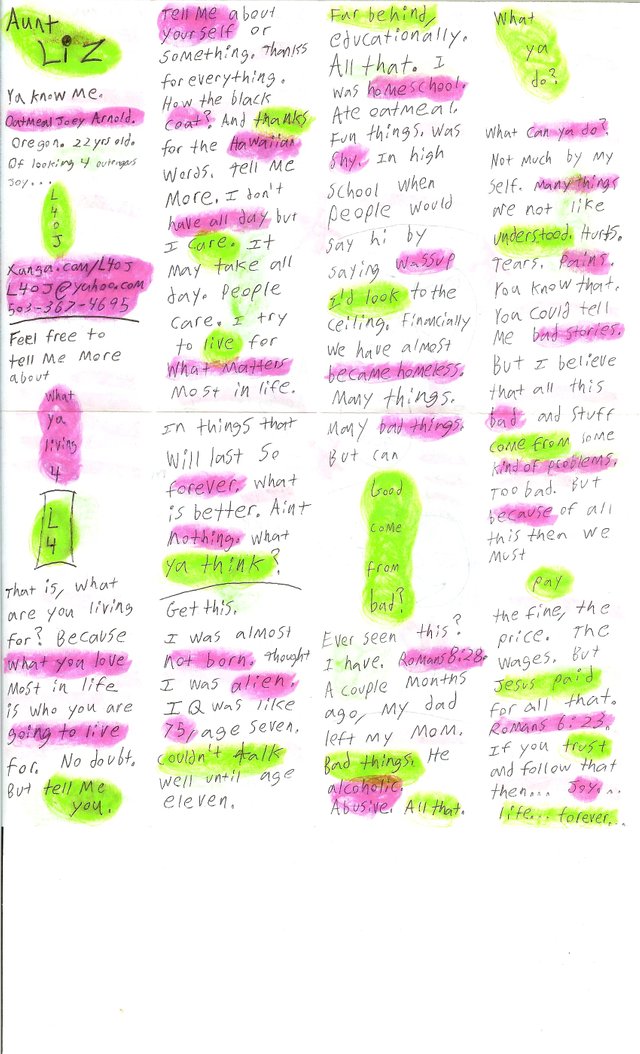 Aunt
Liz
Ya know me.
Oatmeal Joey Arnold.
Oregon. 22 yrs old.
Of looking 4 outrageous
Joy...
L
4
o
J
Xanga.com/L4OJ
L4OJ@yahoo.com
503-367-4695
Feel free to
tell me more
about
What
ya
living
4
L
4
That is, what
are you living
for? Because
what you love
most in life
is who you are
going to live
for. No doubt.
But tell me
you.
Tell me about
yourself or
something. Thanks
for everything.
How the black
coat? And thanks
for the Hawaiian
words. Tell me
more. I don't
have all day but
I care. It
may take all
day. People
care. I try
to live for
what matters
most in life.
In things that
will last so
forever. What
is better. Aint
nothing. What
ya think?
Get this.
I was almost
not born. Thought
I was alien.
IQ was like
75, age seven.
Couldn't talk
well until age
eleven.
Far behind,
educationally.
All that. I
was homeschool.
Ate oatmeal.
Fun things. Was
shy. In high
school when
people would
say hi by
saying wassup
I'd look to the
ceiling. Financially
we have almost
became homeless.
Many things.
Many bad things.
But can
Good
come
from
bad?
Ever seen this?
I have. Romans 8:28.
A couple months
ago, my dad
left my mom.
Bad things. He
alcoholic.
Abusive. All that.
What
ya
do?
What can ya do?
Not much by my
self. Many things
are not like
understood. Hurts.
Tears. Pains.
You know that.
You could tell
me bad stories.
But I believe
that all this
bad and stuff
come from some
kind of problems.
Too bad. But
because of all
this then we
must
pay
the fine, the
price. The
wages. But
Jesus paid
for all that.
Romans 6:23.
If you trust
and follow that
then... Joy...
life... forever...